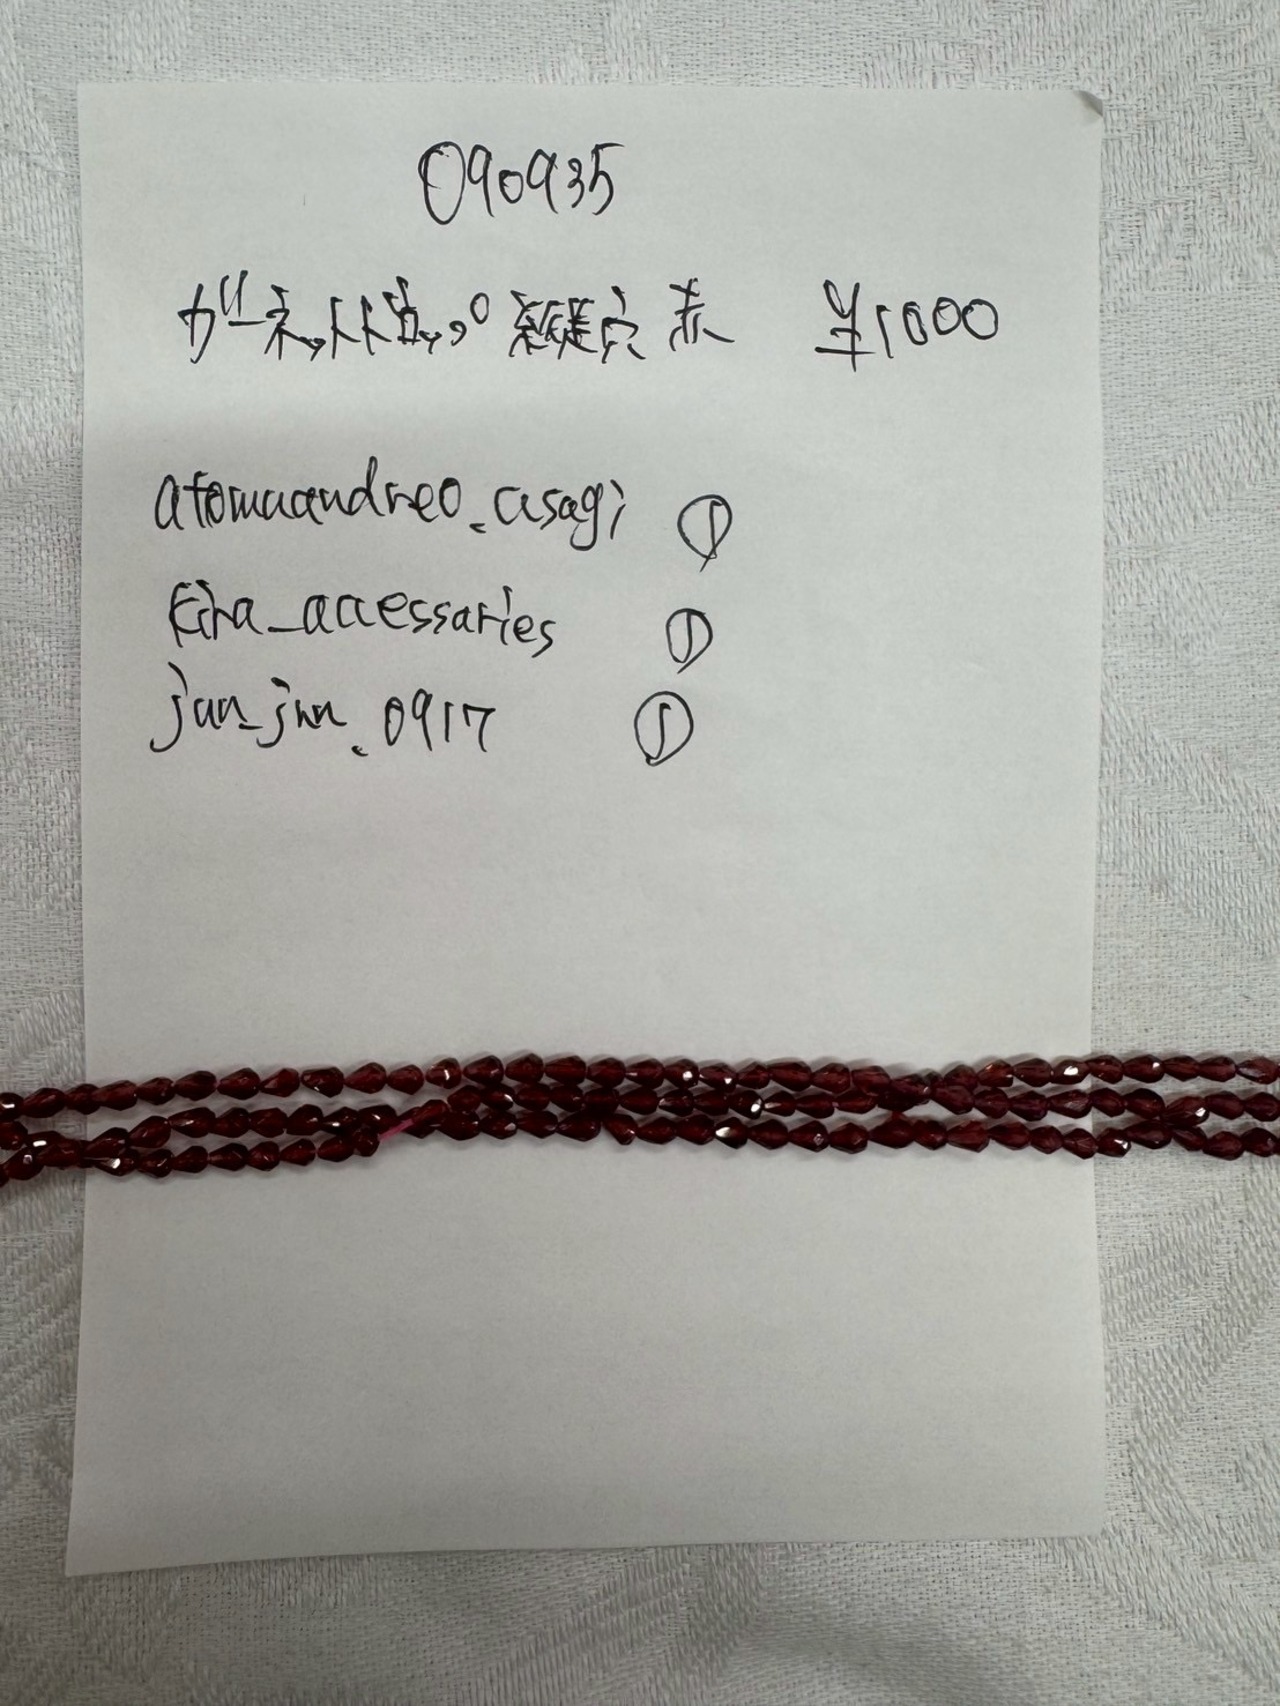 090935
ガーネット ドロップ 縦穴 赤 ¥1000
atomuandreo_asagi ①
Kira_accessaries ①
jun_jun_0917 ①